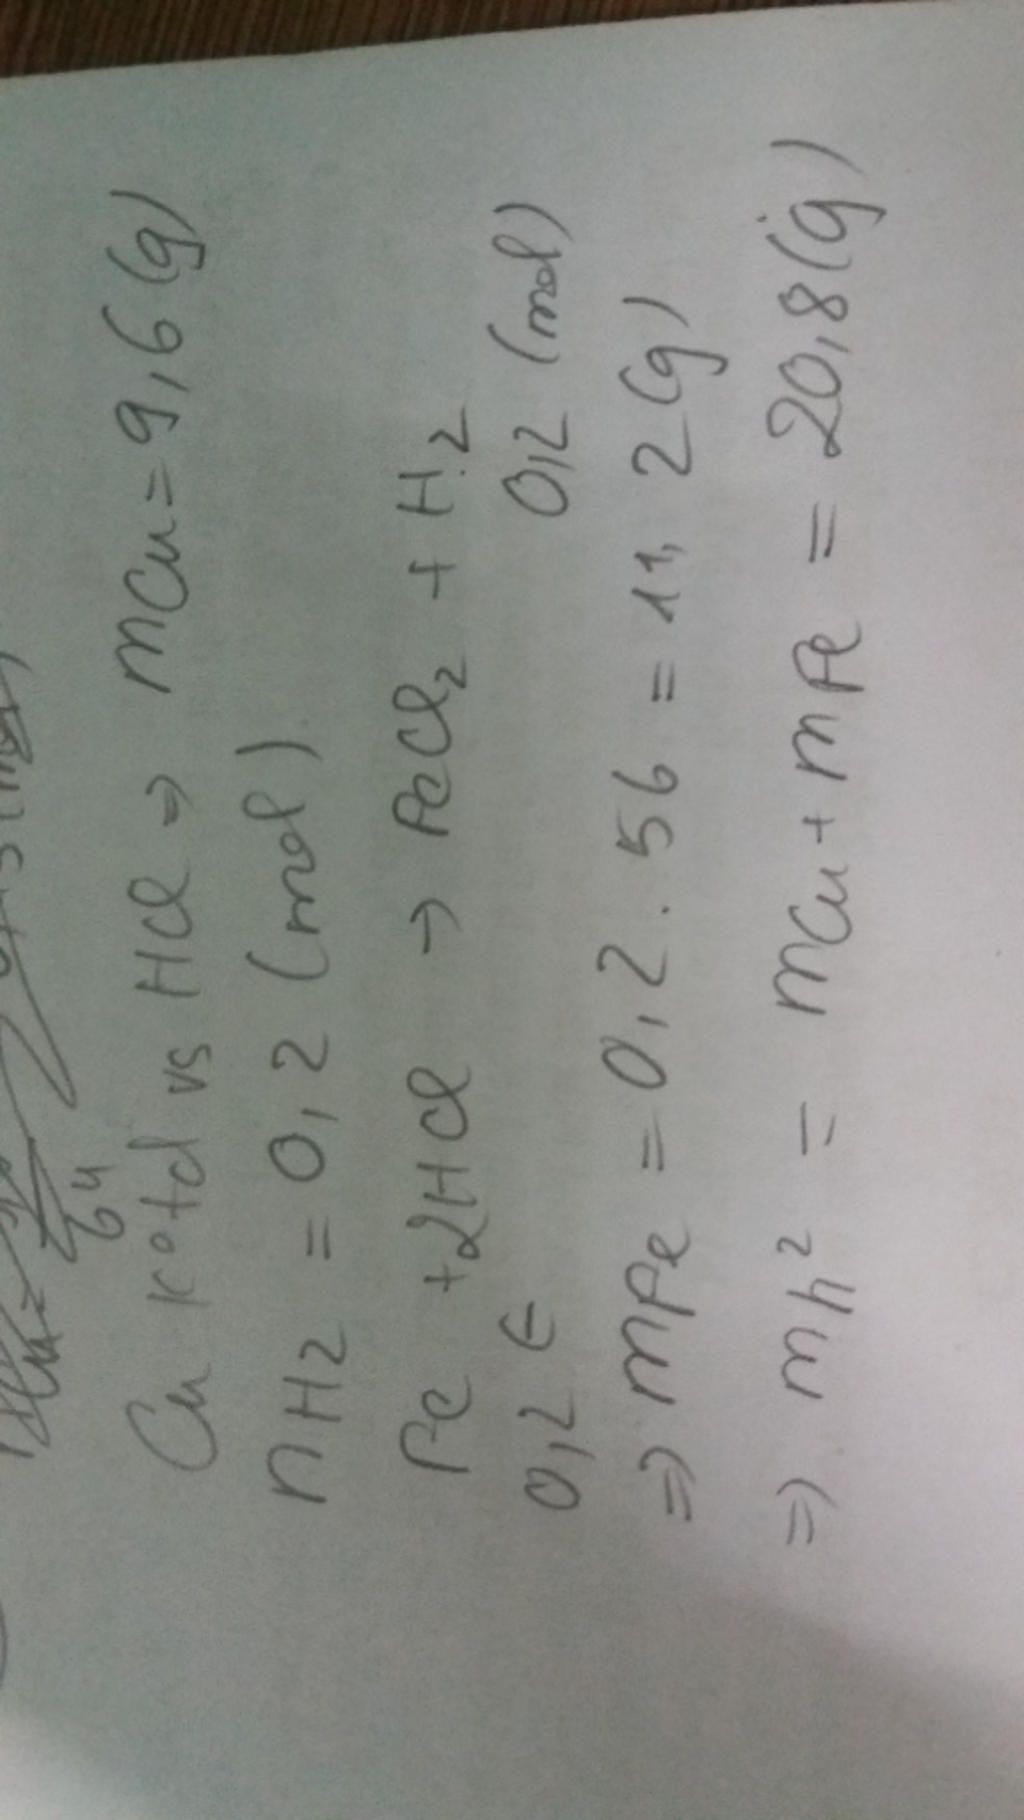 64
Cu k° td vs HCl => mCu = 9,6 (g)
nH2 = 0,2 (mol)
Fe + 2HCl → FeCl2 + H2
0,2 ← 0,2 (mol)
=> mFe = 0,2 . 56 = 11,2 (g)
=> mh² = mCu + mFe = 20,8 (g)